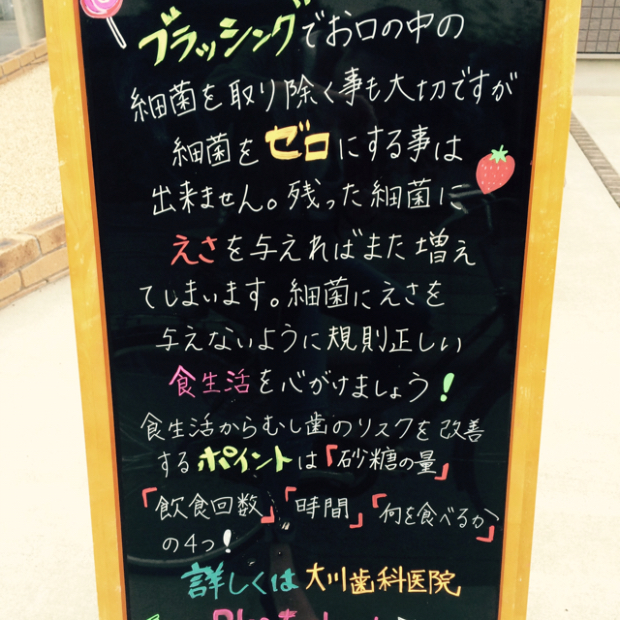 ブラッシングでお口の中の
細菌を取り除く事も大切ですが
細菌をゼロにする事は
出来ません。残った細菌に
えさを与えればまた増え
てしまいます。細菌にえさを
与えないように規則正しい
食生活を心がけましょう!
食生活からむし歯のリスクを改善
するポイントは「砂糖の量」
「飲食回数」「時間」「何を食べるか」
の4つ!
詳しくは大川歯科医院